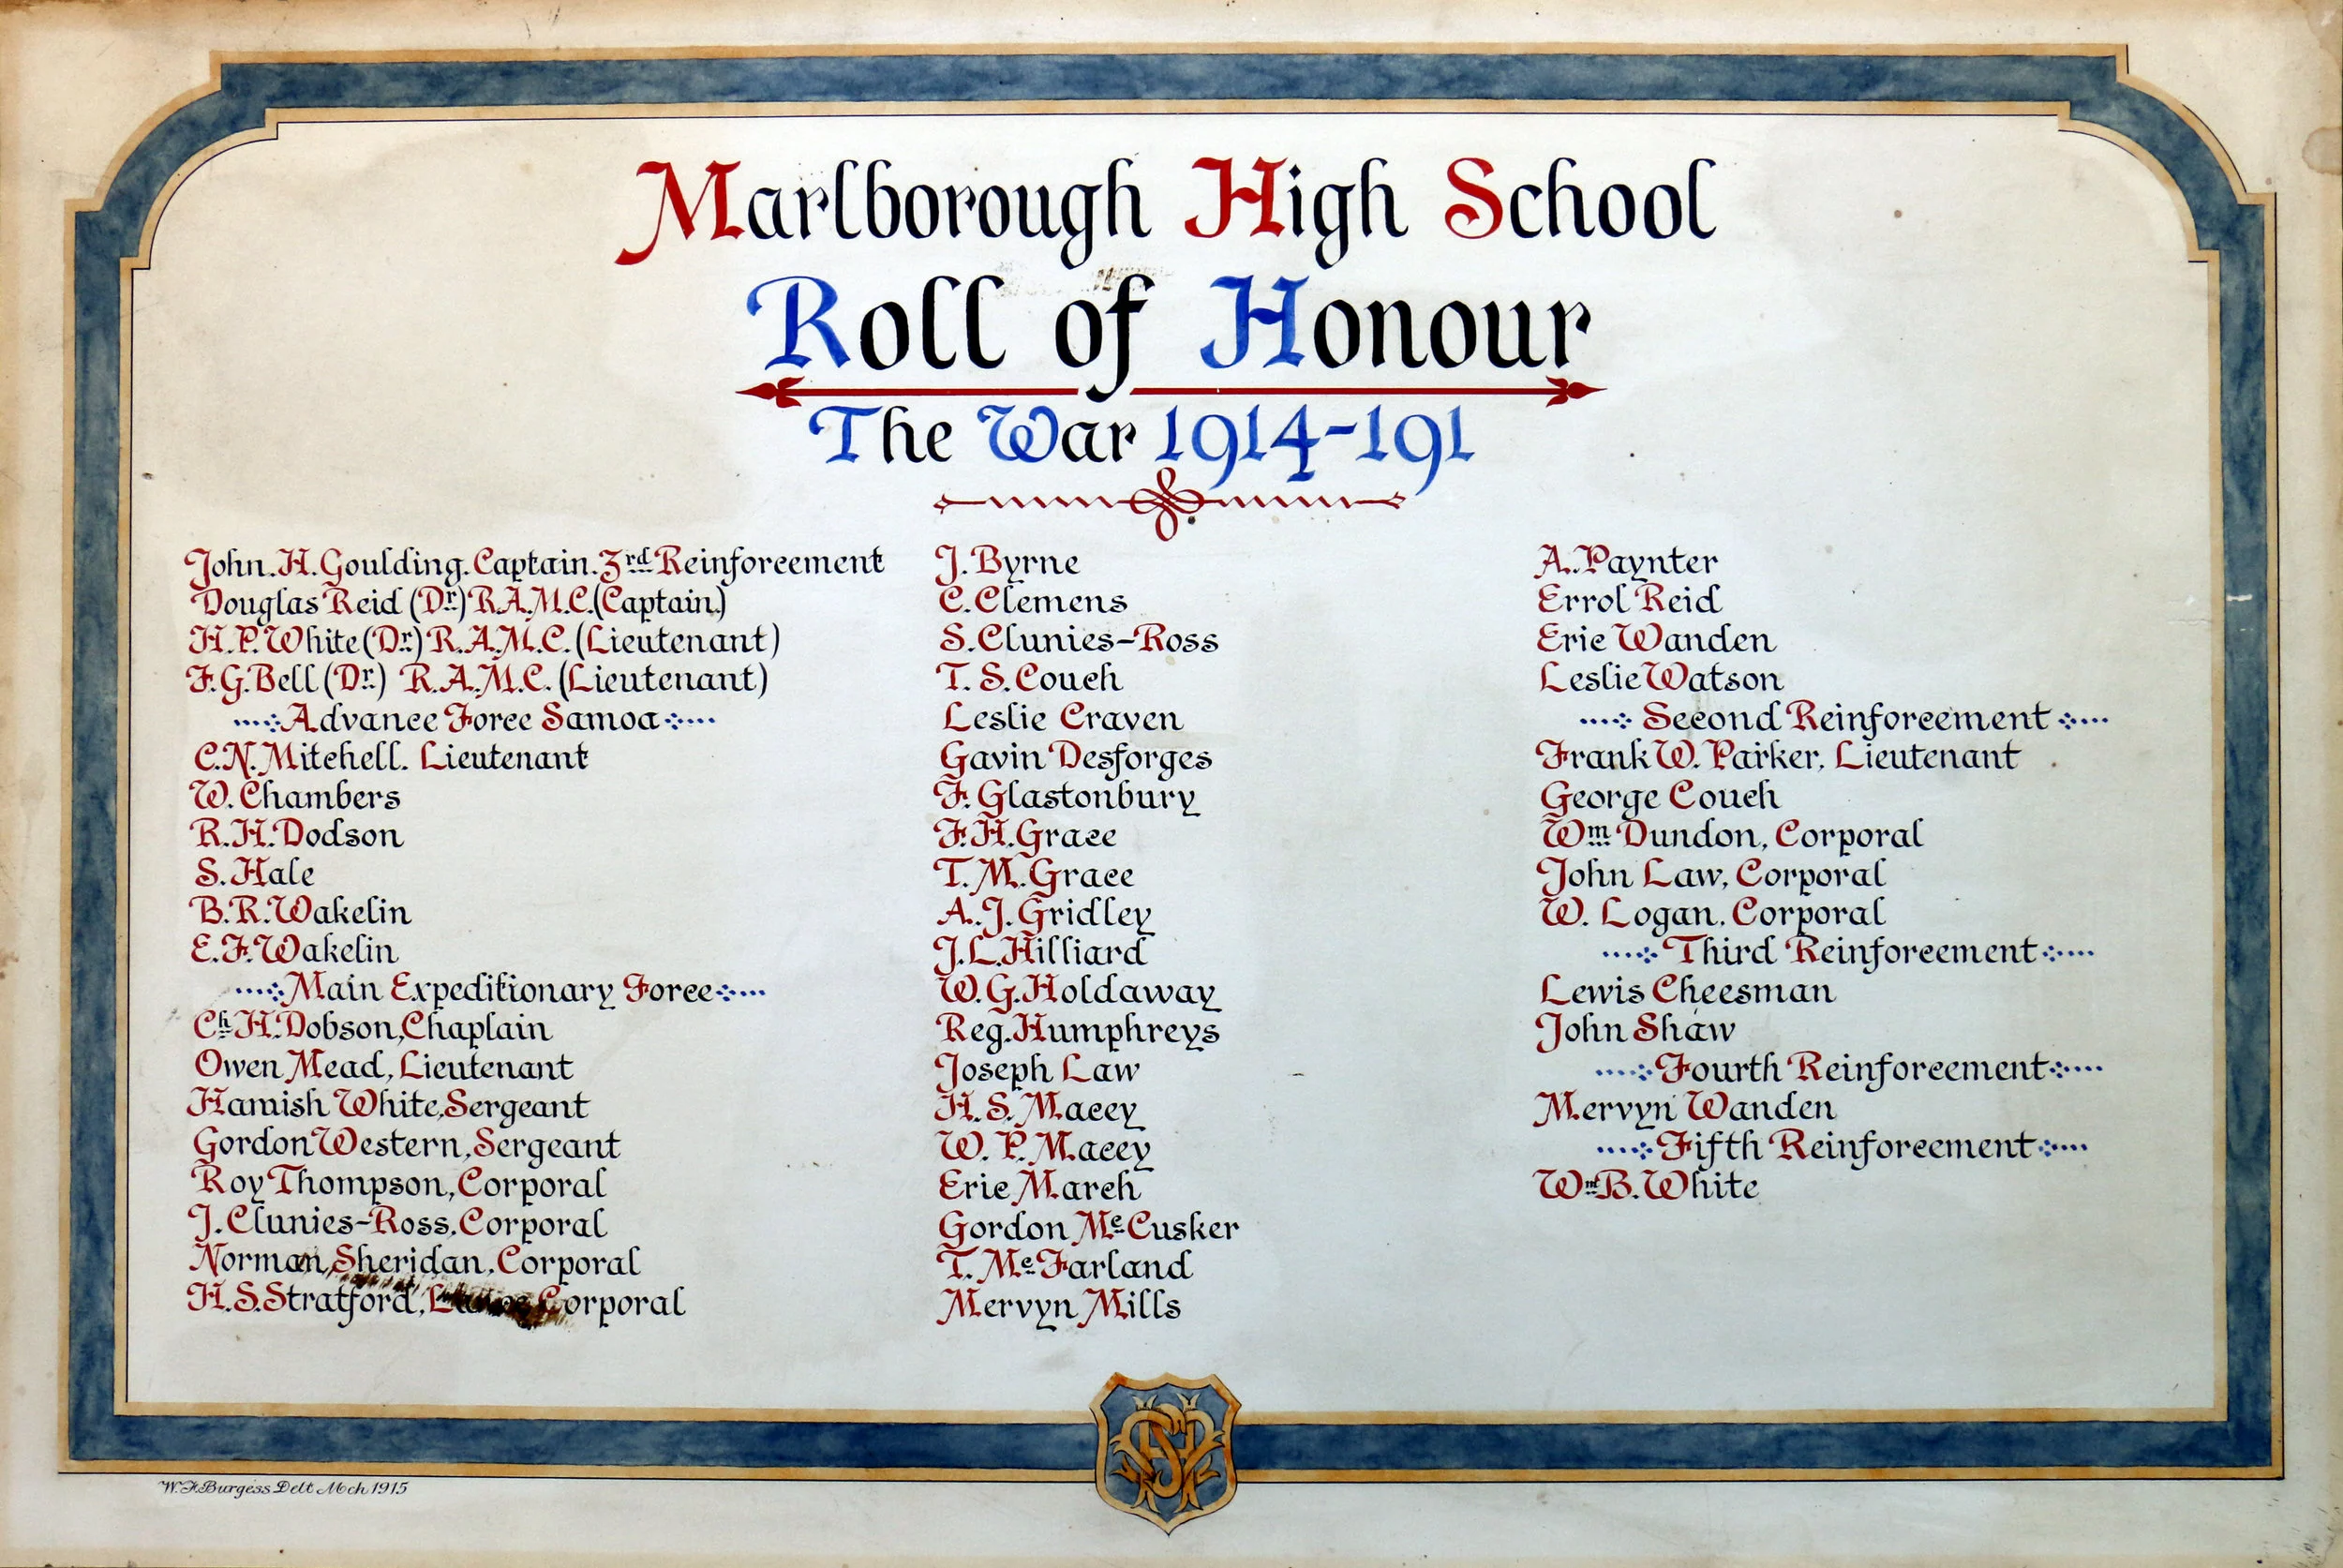 Marlborough High School
Roll of Honour
The War 1914-191
John. H. Goulding. Captain. 3rd Reinforcement
Douglas Reid (Dr.) R.A.M.C. (Captain)
H. P. White (Dr.) R.A.M.C. (Lieutenant)
F. G. Bell (Dr.) R.A.M.C. (Lieutenant)
Advance Force Samoa
C. N. Mitchell. Lieutenant
W. Chambers
R. H. Dodson
S. Hale
B. R. Wakelin
E. F. Wakelin
Main Expeditionary Force
Ch. H. Dobson, Chaplain
Owen Mead, Lieutenant
Hamish White, Sergeant
Gordon Western, Sergeant
Roy Thompson, Corporal
J. Clunies-Ross, Corporal
Norman Sheridan, Corporal
H. S. Stratford, Lance Corporal
J. Byrne
C. Clemens
S. Clunies-Ross
T. S. Couch
Leslie Craven
Gavin Desforges
F. Glastonbury
F. H. Grace
T. M. Grace
A. J. Gridley
J. L. Hilliard
W. G. Holdaway
Reg. Humphreys
Joseph Law
H. S. Macey
W. P. Macey
Eric March
Gordon McCusker
T. McFarland
Mervyn Mills
A. Paynter
Errol Reid
Eric Wanden
Leslie Watson
Second Reinforcement
Frank W. Parker, Lieutenant
George Couch
Wm Dundon, Corporal
John Law, Corporal
W. Logan, Corporal
Third Reinforcement
Lewis Cheesman
John Shaw
Fourth Reinforcement
Mervyn Wanden
Fifth Reinforcement
Wm B. White
W. F. Burgess Delt Mch 1915